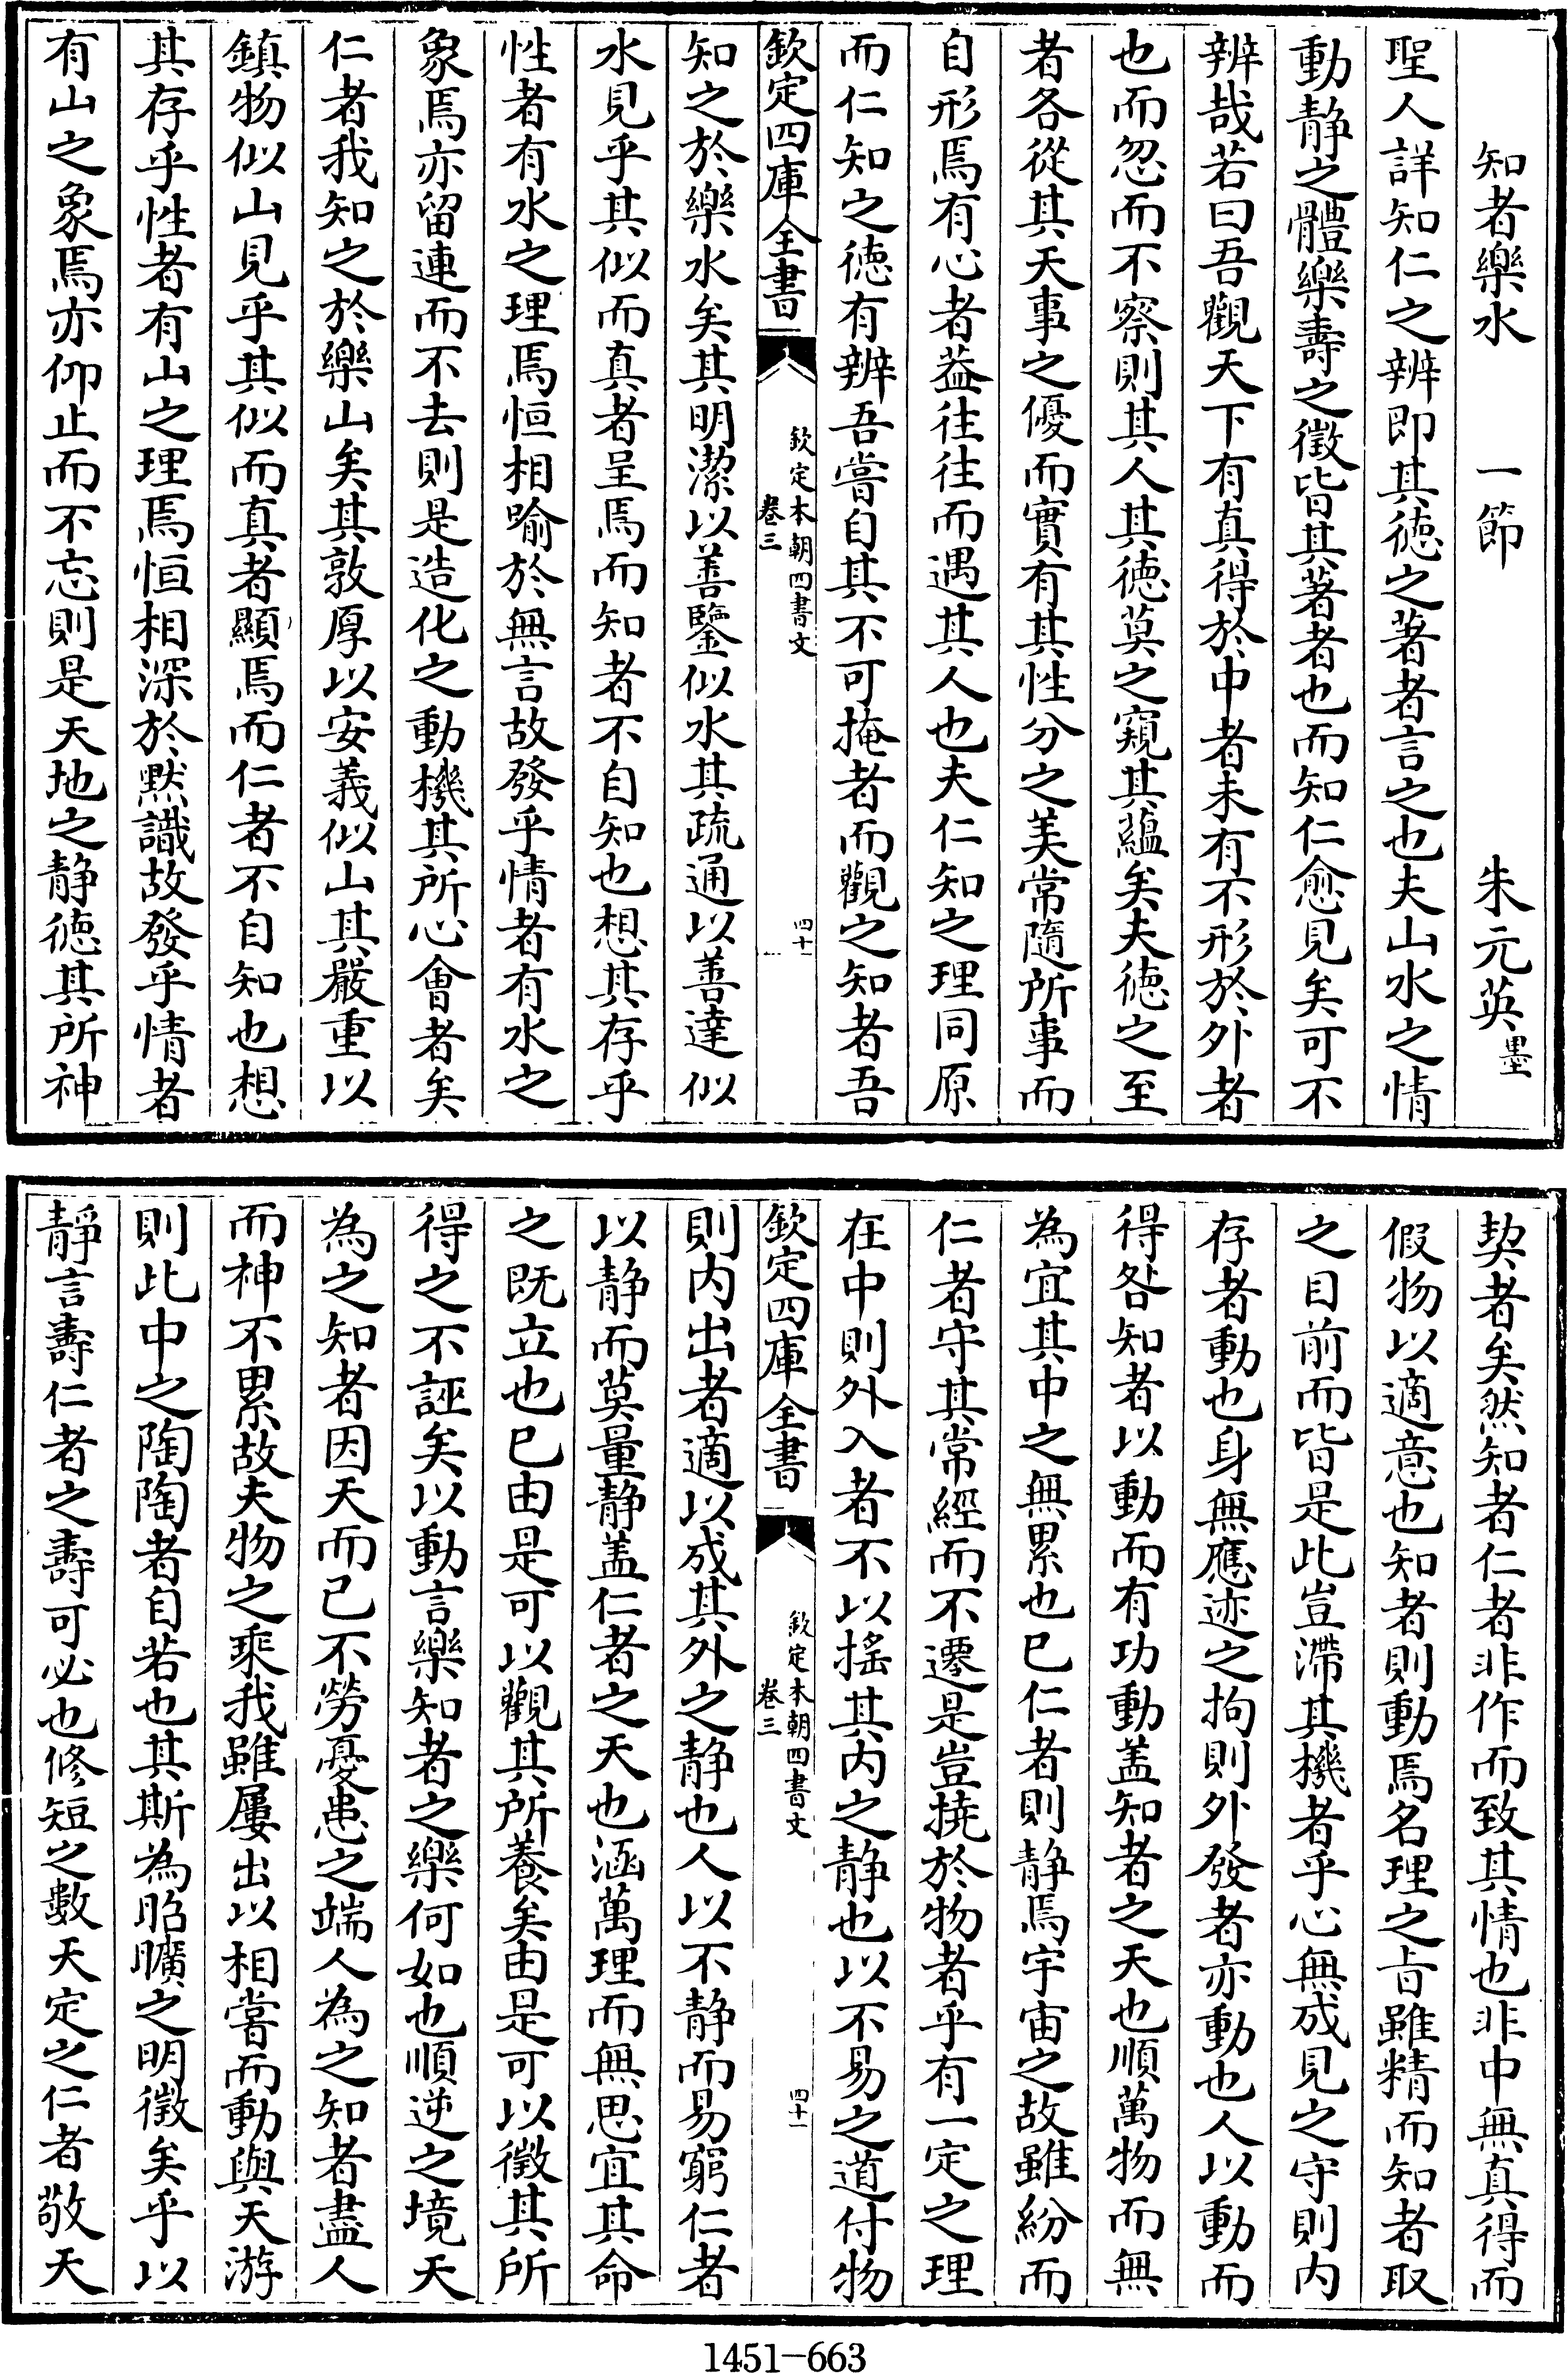 知者樂水　一節　朱元英墨
聖人詳知仁之辨即其徳之著者言之也夫山水之情
動静之體樂壽之徵皆其著者也而知仁愈見矣可不
辨哉若曰吾觀天下有真得於中者未有不形於外者
也而忽而不察則其人其徳莫之窺其蘊矣夫徳之至
者各從其天事之優而實有其性分之美常隨所事而
自形焉有心者葢往往而遇其人也夫仁知之理同原
而仁知之徳有辨吾嘗自其不可掩者而觀之知者吾
欽定四庫全書
欽定本朝四書文
卷三
四十一
知之於樂水矣其明潔以善鑒似水其疏通以善達似
水見乎其似而真者呈焉而知者不自知也想其存乎
性者有水之理焉恒相喻於無言故發乎情者有水之
象焉亦留連而不去則是造化之動機其所心會者矣
仁者我知之於樂山矣其敦厚以安義似山其嚴重以
鎮物似山見乎其似而真者顯焉而仁者不自知也想
其存乎性者有山之理焉恒相深於黙識故發乎情者
有山之象焉亦仰止而不忘則是天地之静徳其所神
契者矣然知者仁者非作而致其情也非中無真得而
假物以適意也知者則動焉名理之㫖雖精而知者取
之目前而皆是此豈滯其機者乎心無成見之守則内
存者動也身無應迹之拘則外發者亦動也人以動而
得咎知者以動而有功動盖知者之天也順萬物而無
為宜其中之無累也已仁者則静焉宇宙之故雖紛而
仁者守其常經而不遷是豈撓於物者乎有一定之理
在中則外入者不以搖其内之静也以不易之道付物
欽定四庫全書
欽定本朝四書文
卷三
四十一
則内出者適以成其外之静也人以不静而易窮仁者
以静而莫量静盖仁者之天也涵萬理而無思宜其命
之既立也已由是可以觀其所養矣由是可以徵其所
得之不誣矣以動言樂知者之樂何如也順逆之境天
為之知者因天而已不勞憂患之端人為之知者盡人
而神不累故夫物之乘我雖屢出以相嘗而動與天游
則此中之陶陶者自若也其斯為昭曠之明徵矣乎以
靜言壽仁者之壽可必也修短之數天定之仁者敬天
1451-663